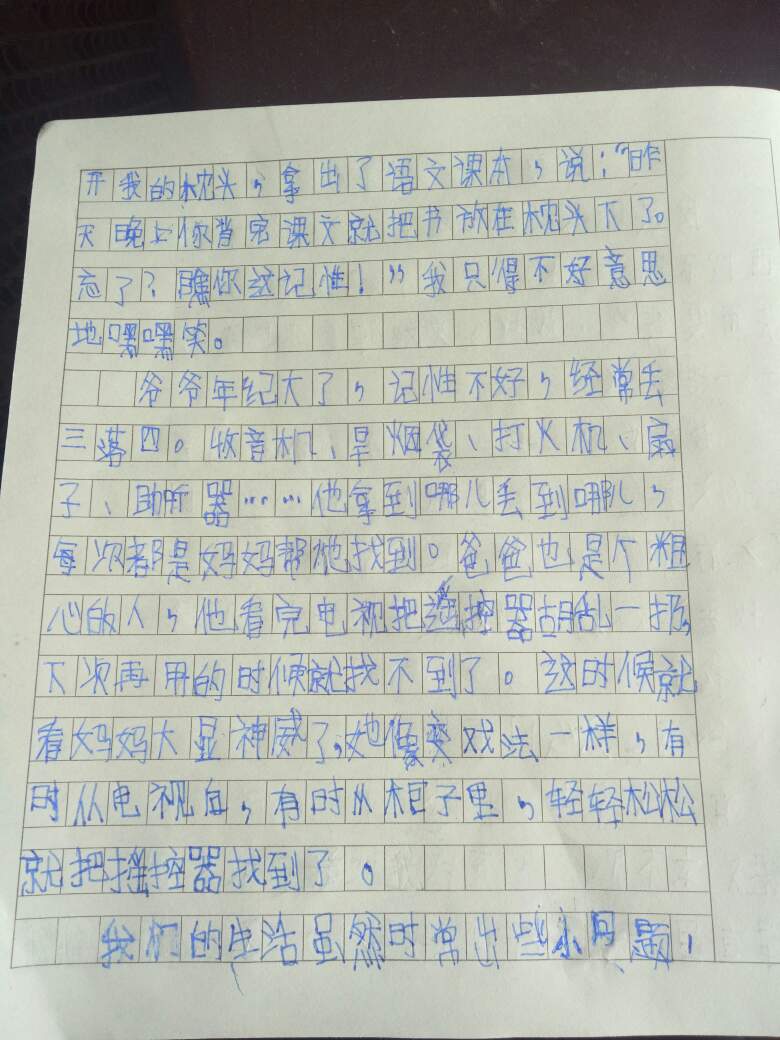 开我的枕头，拿出了语文课本，说：“昨
天晚上你背完课文就把书放在枕头下了。
忘了？瞧你这记性！”我只得不好意思
地嘿嘿笑。
爷爷年纪大了，记性不好，经常丢
三落四。收音机、旱烟袋、打火机、扇
子、助听器……他拿到哪儿丢到哪儿，
每次都是妈妈帮他找到。爸爸也是个粗
心的人，他看完电视把遥控器胡乱一扔，
下次再用的时候就找不到了。这时候就
看妈妈大显神威了，她像变戏法一样，有
时从电视后，有时从柜子里，轻轻松松
就把摇控器找到了。
我们的生活虽然时常出些小问题，